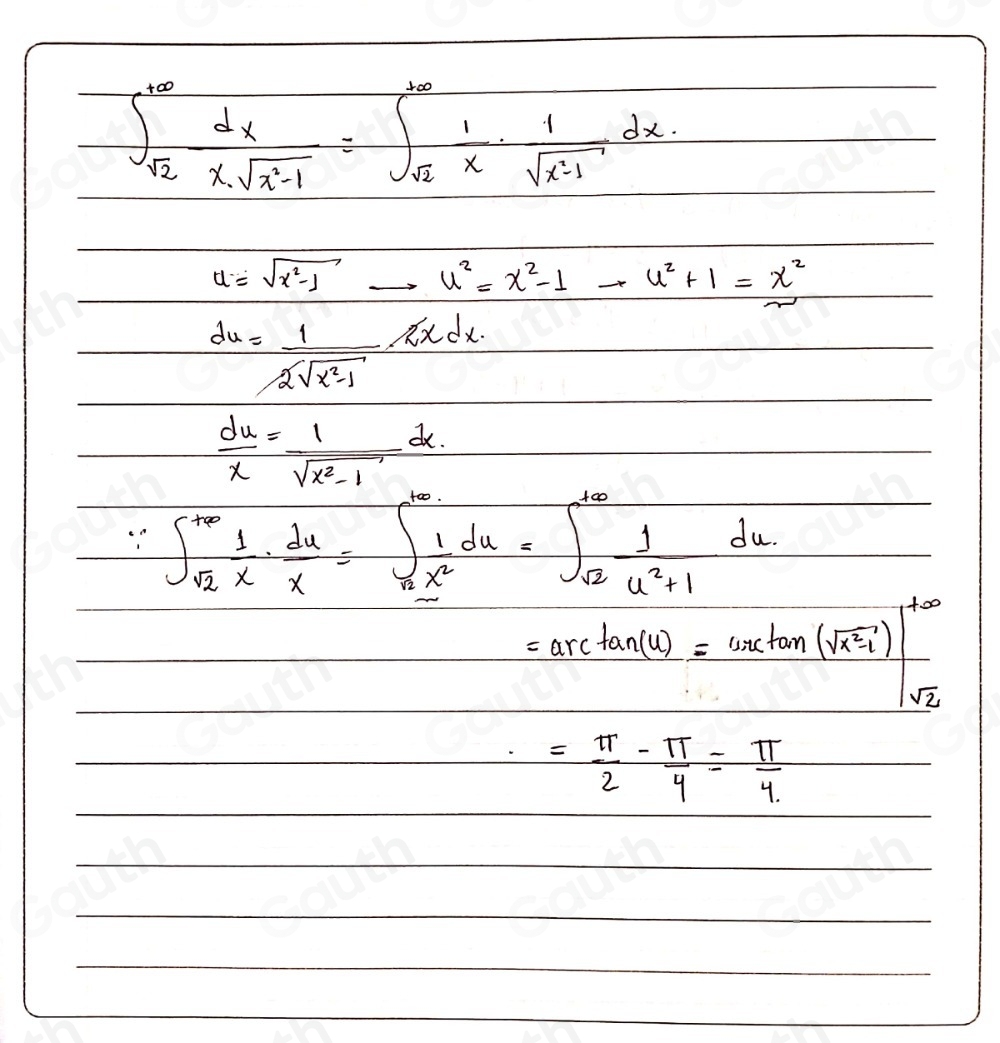 ∫_{√2}^{+∞} dx / (x.√(x²-1)) = ∫_{√2}^{+∞} 1/x . 1/√(x²-1) dx.
u = √(x²-1) → u² = x²-1 → u²+1 = x²
du = 1/(2√(x²-1)) .2x dx.
du/x = 1/√(x²-1) dx.
∵ ∫_{√2}^{+∞} 1/x . du/x = ∫_{√2}^{+∞.} 1/x² du = ∫_{√2}^{+∞} 1/(u²+1) du.
= arc tan(u) = arctan (√(x²-1)) |_{√2}^{+∞}
. = π/2 - π/4 = π/4.